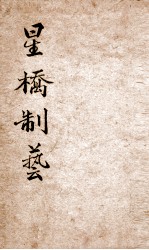 星橋制藝